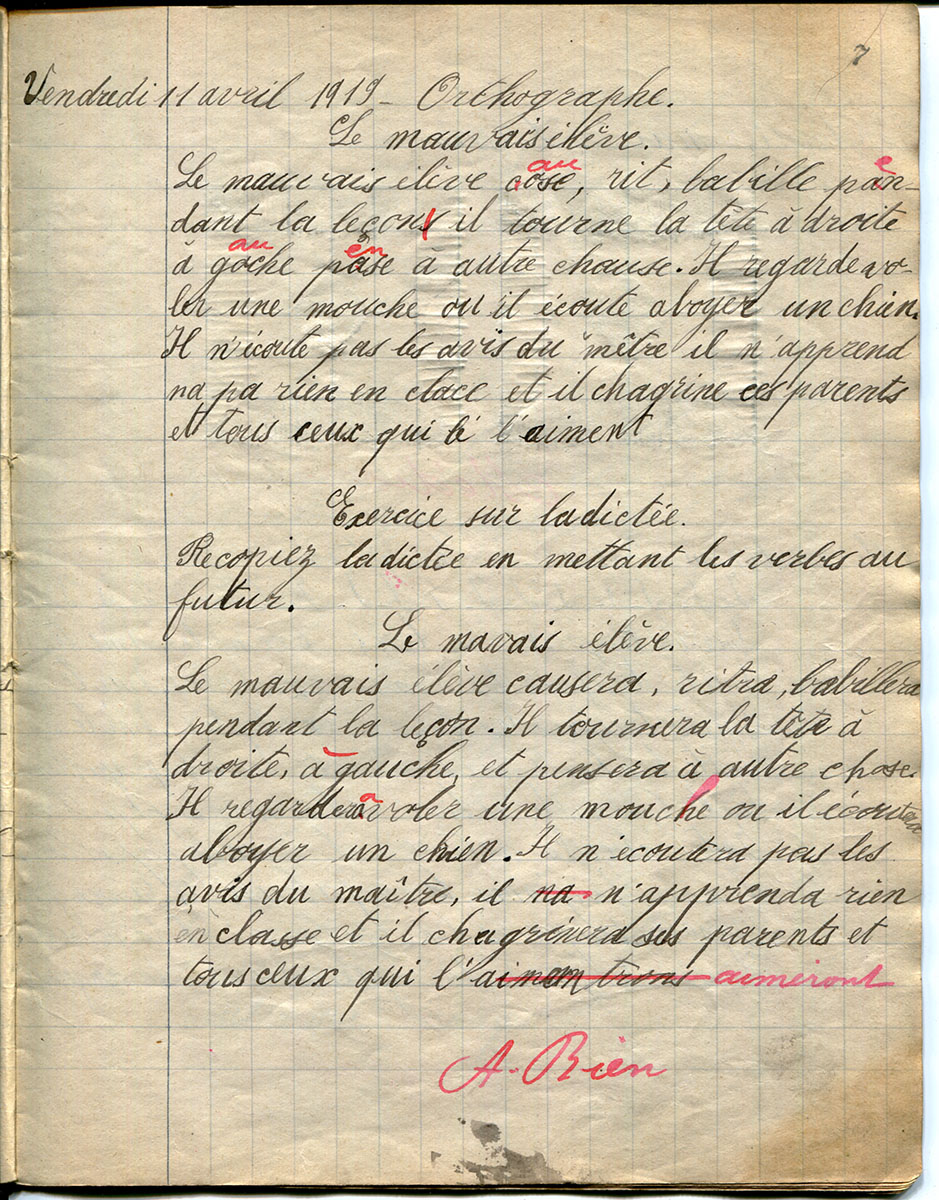 7
Vendredi 11 avril 1919 - Orthographe.
Le mauvais élève.
au e
Le mauvais élève cose, rit, babille pan-
dant la leçons il tourne la tête à droite
au en
à goche pase à autre chause. Il regarde vo-
ler une mouche ou il écoute aboyer un chien.
Il n'écoute pas les avis du mêtre il n'apprend
na pa rien en clace et il chagrine ces parents
et tous ceux qui l'aiment
Exercice sur la dictée.
Recopiez la dictée en mettant les verbes au
futur.
Le mavais élève.
Le mauvais élève causera, ritra, babillera
pendant la leçon. Il tournera la tête à
droite, à gauche, et pensera à autre chose.
Il regardera voler une mouche ou il écoutera
aboyer un chien. Il n'écoutera pas les
avis du maître, il na n'apprenda rien
en classe et il chagrinera ses parents et
tous ceux qui l'aimeront
A. Bien